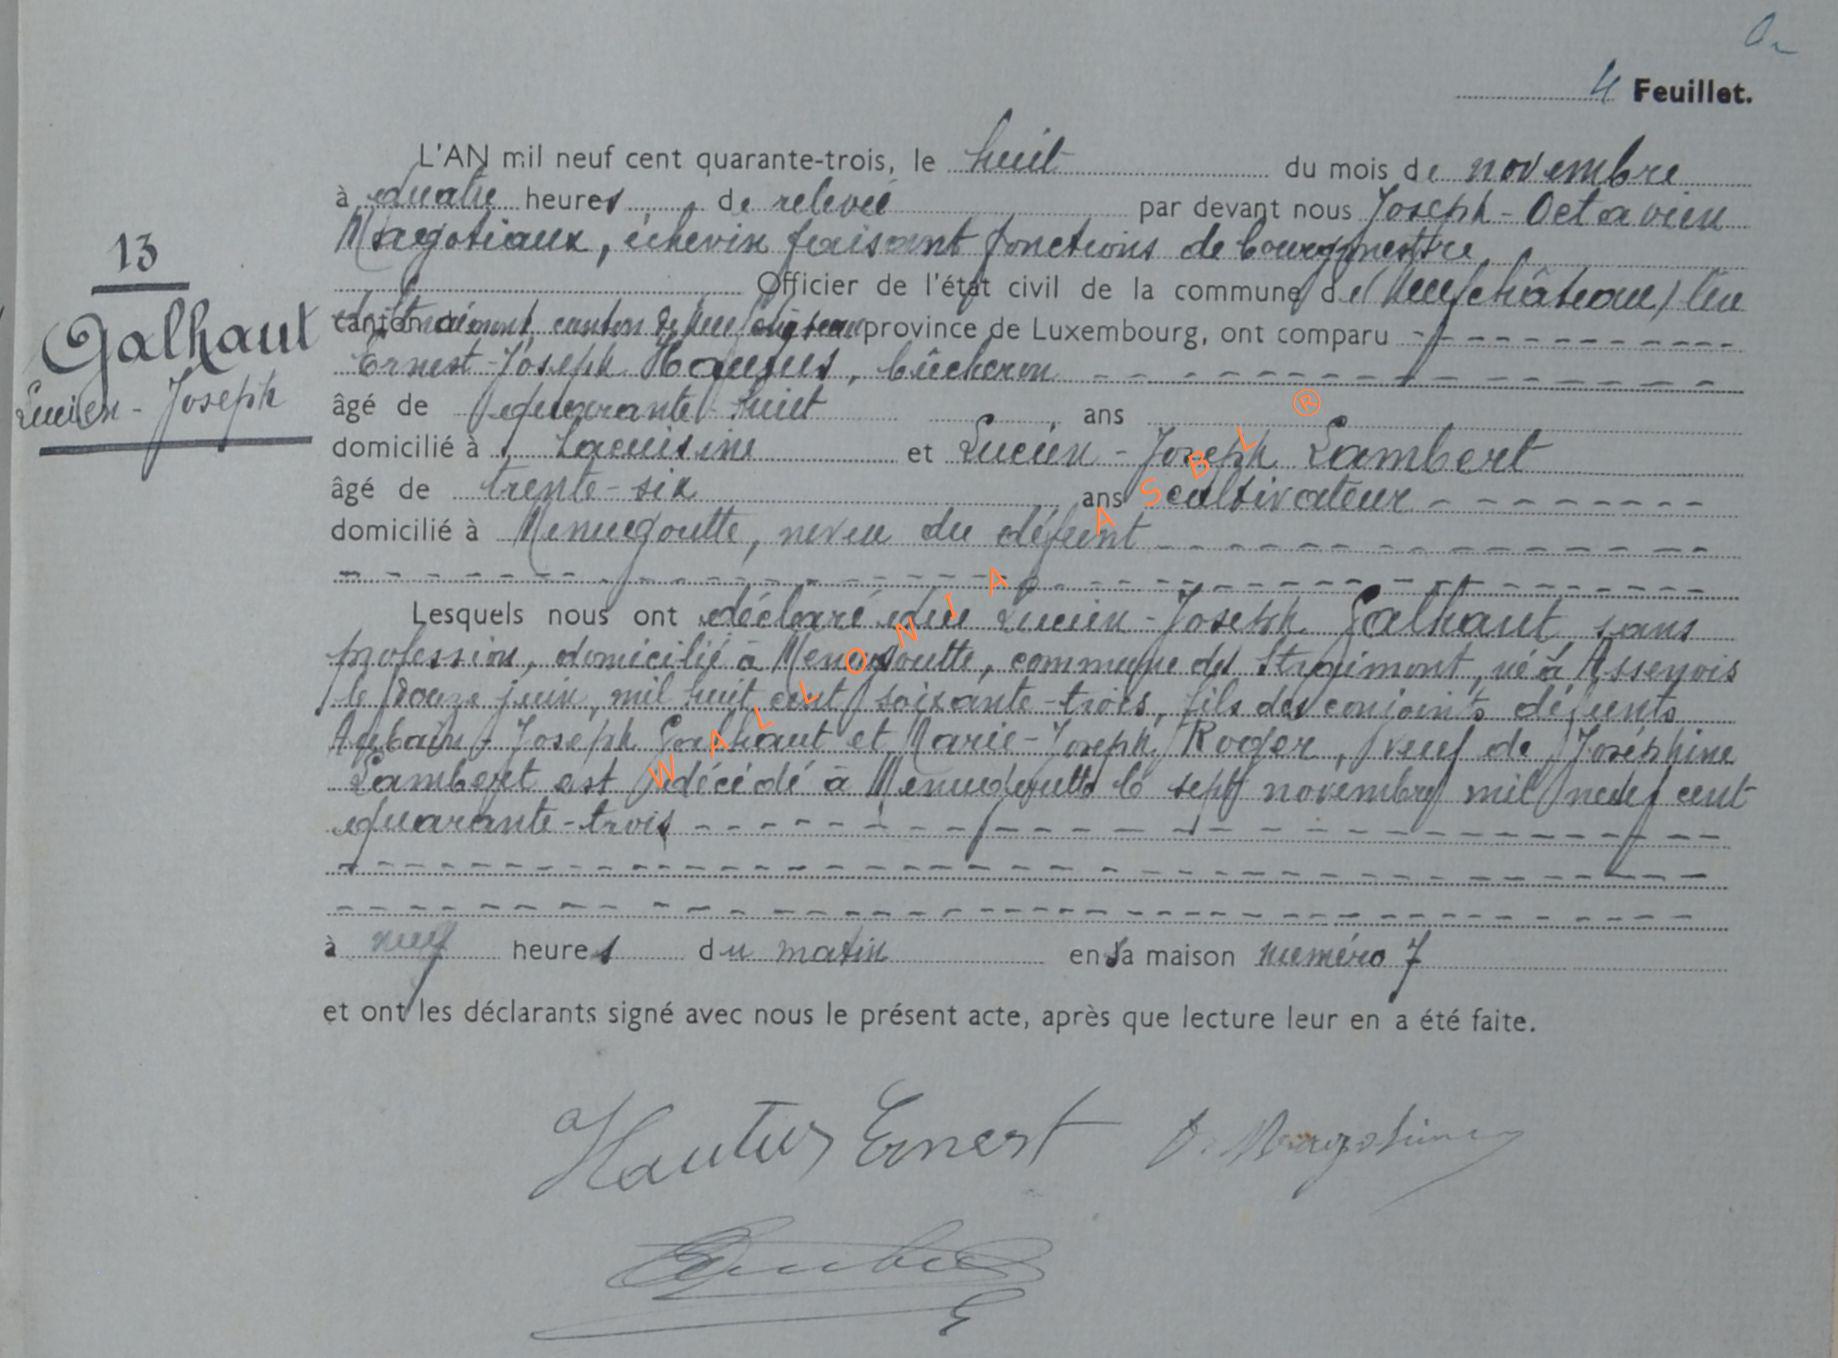 4 Feuillet.
L'AN mil neuf cent quarante-trois, le huit du mois de novembre
à quatre heures de relevée par devant nous Joseph - Octavien
Magotiaux, échevin faisant fonctions de bourgmestre
Officier de l'état civil de la commune de (Neufchâteau)
canton canton de Neufchâteau province de Luxembourg, ont comparu
13
Galhaut
Lucien - Joseph
Ernest-Joseph Hautus, bûcheron
âgé de quarante-huit ans
domicilié à Lacuisine et Lucien - Joseph Lambert
âgé de trente-six ans cultivateur
domicilié à Menugoutte, neveu du défunt
Lesquels nous ont déclaré que Lucien - Joseph Galhaut sans
profession, domicilié à Menugoutte, commune de Straimont, né à Assenois
le douze juin, mil huit cent soixante-trois, fils des conjoints défunts
Joseph Galhaut et Marie-Joseph Roger, veuf de Joséphine
Lambert est décédé à Menugoutte le sept novembre mil neuf cent
quarante-trois
à neuf heures du matin en sa maison numéro 7
et ont les déclarants signé avec nous le présent acte, après que lecture leur en a été faite.
Hautus Ernest O. Magotiaux
WALLONIA ASBL ®